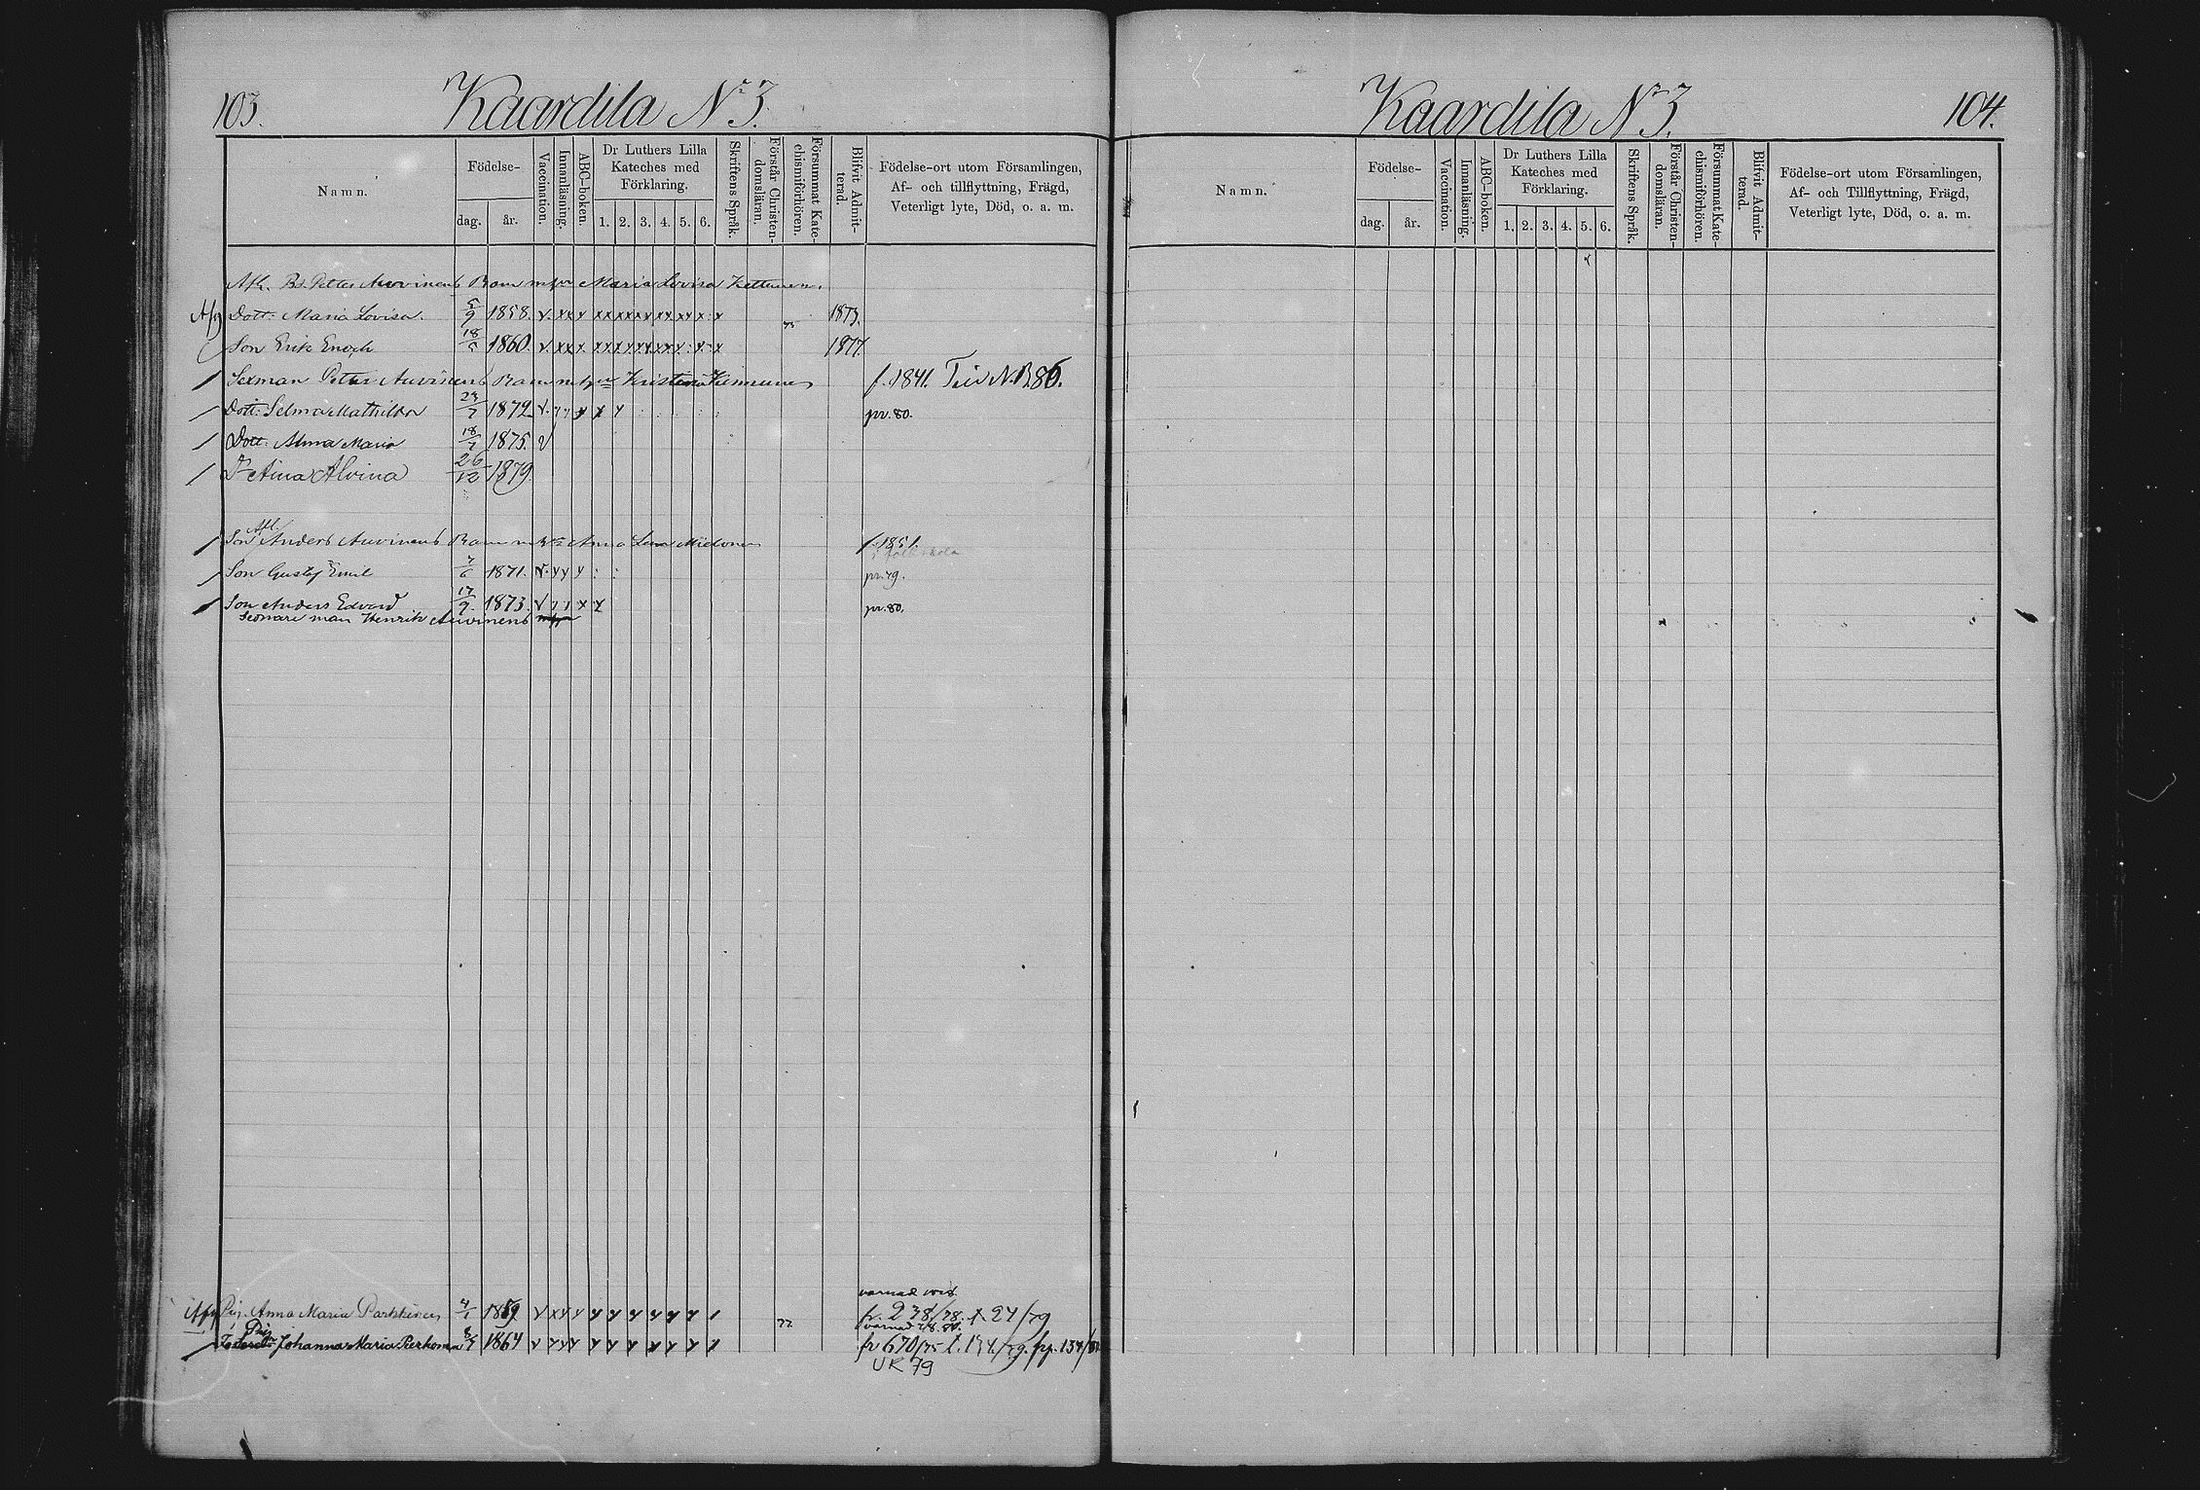 103.
Kaardila No 3.
Namn.
Födelse-
dag.
år.
Vaccination.
Innanläsning.
ABC-boken.
Dr Luthers Lilla
Kateches med
Förklaring.
1. 2. 3. 4. 5. 6.
Skriftens Språk.
Förstår Christen-
domsläran.
Försummat Kate-
chismiförhören.
Blifvit Admit-
terad.
Födelse-ort utom Församlingen,
Af- och tillflyttning, Frägd,
Veterligt lyte, Död, o. a. m.
Afl. Bd. Petter Auvinens Barn m Maria Lovisa Kettunen.
Dott: Maria Lovisa. 5/9 1858. v. xx x xx xx xx xx xx x x 1873.
Son Erik Enoch 18/5 1860. v. xx x. xx xx xx xx x x x 1877.
Sexman Petter Auvinens Barn m Kristina Heinunen f. 1841.
Dott: Selma Mathilda 23/7 1872. v. x x x pr. 80.
Dott: Alma Maria 18/7 1875. v
D Aina Alvina 26/12 1879.
Afl.
Son Anders Auvinens Barn m Anna Lena Mielonen f. 1851.
folkskola
Son Gustaf Emil 7/6 1871. v. x x x pr. 79.
Son Anders Edvard 17/9. 1873. v x x pr. 80.
Senare man Henrik Auvinens
varnad
Pig. Anna Maria Parkkinen 4/1 1859 v xx x x x x x x x 1 77 fr. 238/78. t. 24/79
varnad
Pig.
Johanna Maria Pierkonen 1864 v xx x x x x x x x 1 fr 670/75 t. 134/79. fr. 134/80
UK 79
Kaardila No 3.
104.
Namn.
Födelse-
dag.
år.
Vaccination.
Innanläsning.
ABC-boken.
Dr Luthers Lilla
Kateches med
Förklaring.
1. 2. 3. 4. 5. 6.
Skriftens Språk.
Förstår Christen-
domsläran.
Försummat Kate-
chismiförhören.
Blifvit Admit-
terad.
Födelse-ort utom Församlingen,
Af- och Tillflyttning, Frägd,
Veterligt lyte, Död, o. a. m.